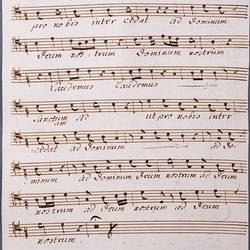 pro nobis inter cedat ad Dominum
Deum nos trum Dominum nostrum
Gaudemus Gaudemus
Sanctum ut pro nobis inter
am
cedat ad Dominum ad Do
minum ad Deum nostrum ad Deum
nostrum ad Deum nostrum ad Deum
nostrum.